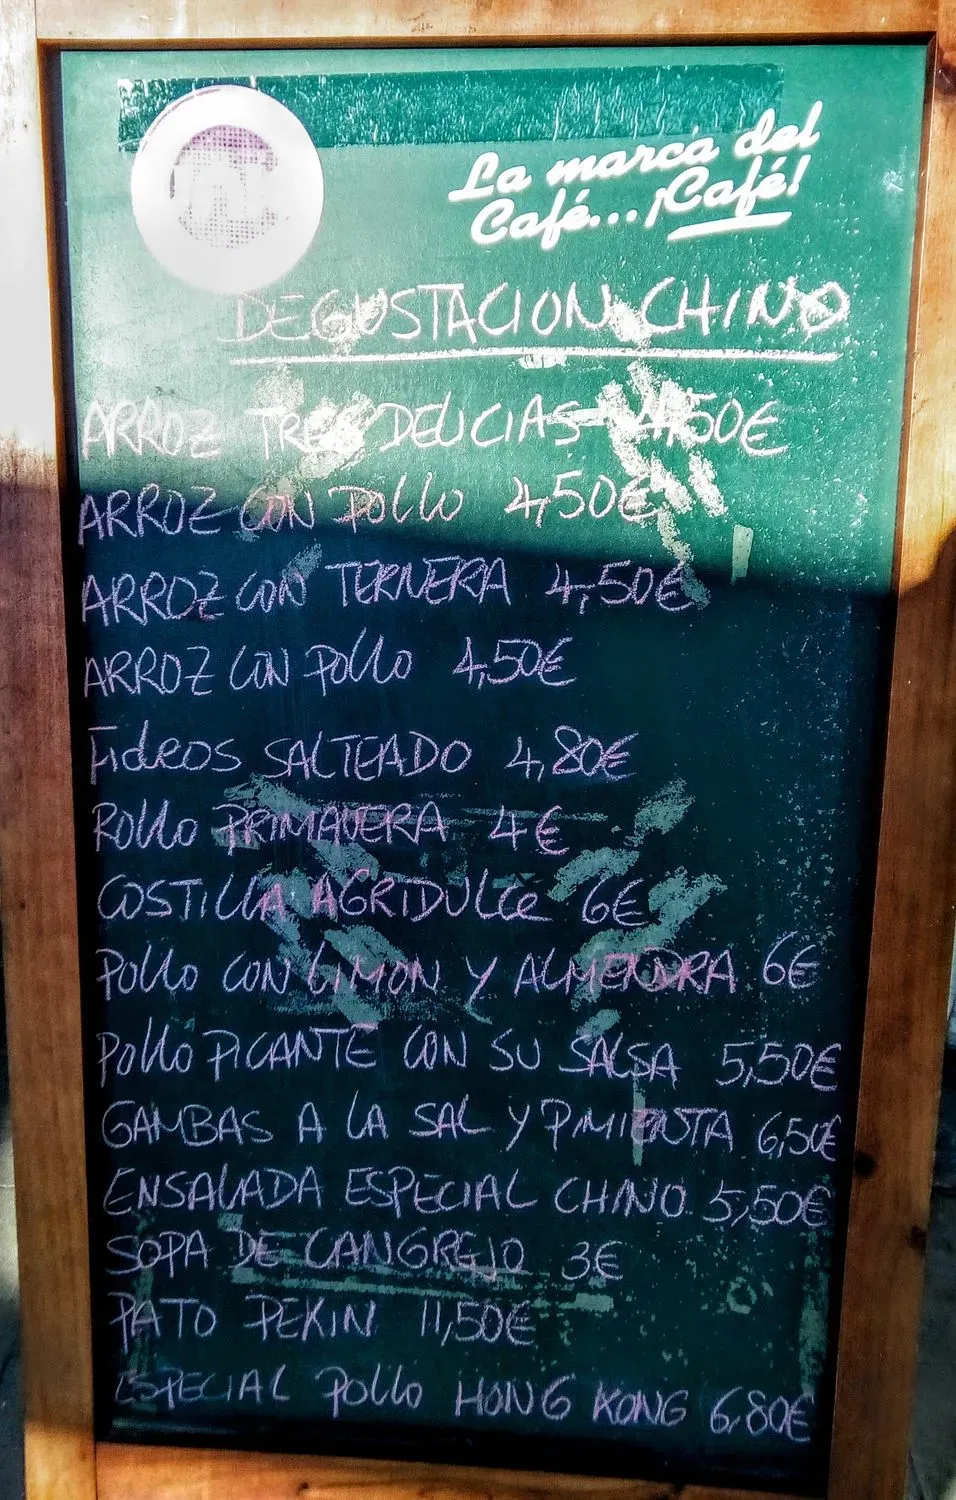 La marca del
Café... ¡Café!
DEGUSTACION CHINO
ARROZ TRES DELICIAS 4,50€
ARROZ CON POLLO 4,50€
ARROZ CON TERNERA 4,50€
ARROZ CON POLLO 4,50€
FIDEOS SALTEADO 4,80€
ROLLO PRIMAVERA 4€
COSTILLA AGRIDULCE 6€
POLLO CON LIMON Y ALMENDRA 6€
POLLO PICANTE CON SU SALSA 5,50€
GAMBAS A LA SAL Y PIMIENTA 6,50€
ENSALADA ESPECIAL CHINO 5,50€
SOPA DE CANGREJO 3€
PATO PEKIN 11,50€
ESPECIAL POLLO HONG KONG 6,80€